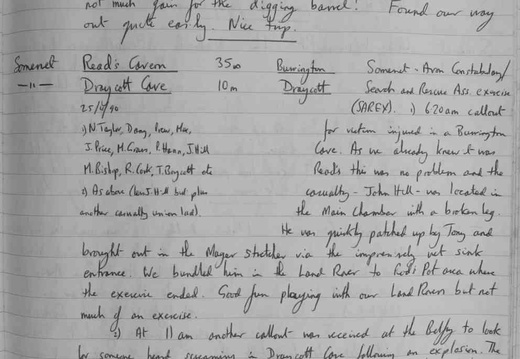 not much gain for the digging barrel! Found our way
out quite easily. Nice trip.
Somerset Read's Cavern 350 Burrington Somerset - Avon Constabulary/
—"— Draycott Cave 10m Draycott Search and Rescue Ass. exercise
25/4/90 (SAREX). i) 6.20am callout
i) N Taylor, Dany, Prew, Mac, for victim injured in a Burrington
J. Price, M. Grass, P. Hann, J. Hill Cave. As we already knew it was
M. Bishop, R. Cork, T. Boycott etc Read's this was no problem and the
2) As above (less J. Hill but plus casualty - John Hill - was located in
another casualty union lad). the Main Chamber with a broken leg.
He was quickly patched up by Tony and
brought out in the Mager stretcher via the impressively wet sink
entrance. We bundled him in the Land Rover to Rod's Pot area where
the exercise ended. Good fun playing with our Land Rovers but not
much of an exercise.
2) At 11am another callout was received at the Belfry to look
for someone heard screaming in Draycott Cave following an explosion. The